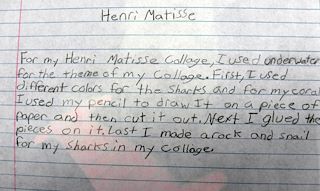 Henri Matisse
For my Henri Matisse Collage, I used underwater
for the theme of my Collage. First, I used
different colors for the sharks and for my coral
I used my pencil to draw It on a piece of
paper and then cut it out. Next I glued the
pieces on it. Last I made a rock and snail
for my sharks in my collage.